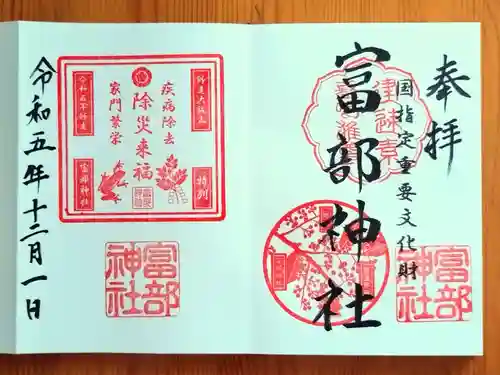 奉拝
国指定重要文化財
富部神社
富部神社
疾病除去
除災来福
家門繁栄
特別
富部神社
富部神社
令和五年十二月一日